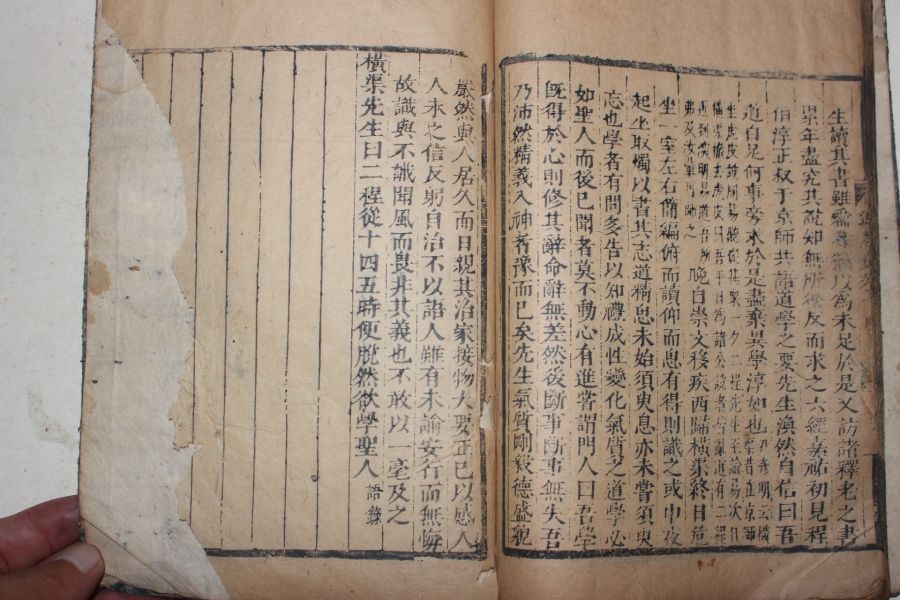 生讀其書雖愛之猶以為未足於是又訪諸釋老之書
累年盡究其說知無所得反而求之六經嘉祐初見程
伯淳正叔于京師共語道學之要先生渙然自信曰吾
道自足何事旁求於是盡棄異學淳如也尹彥明云橫渠昔在京師
坐虎皮說周易聽從甚眾一夕二程先生至論易次日
橫渠撤去虎皮曰吾平日為諸公說者皆亂道有二程
近到深明易道吾所弗及汝輩可師之晚自崇文移疾西歸橫渠終日危
坐一室左右簡編俯而讀仰而思有得則識之或中夜
起坐取燭以書其志道精思未始須臾息亦未嘗須臾
忘也學者有問多告以知禮成性變化氣質之道學必
如聖人而後已聞者莫不動心有進嘗謂門人曰吾學
既得於心則修其辭命辭無差然後斷事斷事無失吾
乃沛然精義入神者豫而已矣先生氣質剛毅德盛貌
嚴然與人居久而日親其治家接物大要正已以感人
人未之信反躬自治不以語人雖有未諭安行而無悔
故識與不識聞風而畏非其義也不敢以一毫及之
橫渠先生曰二程從十四五時便脫然欲學聖人語錄